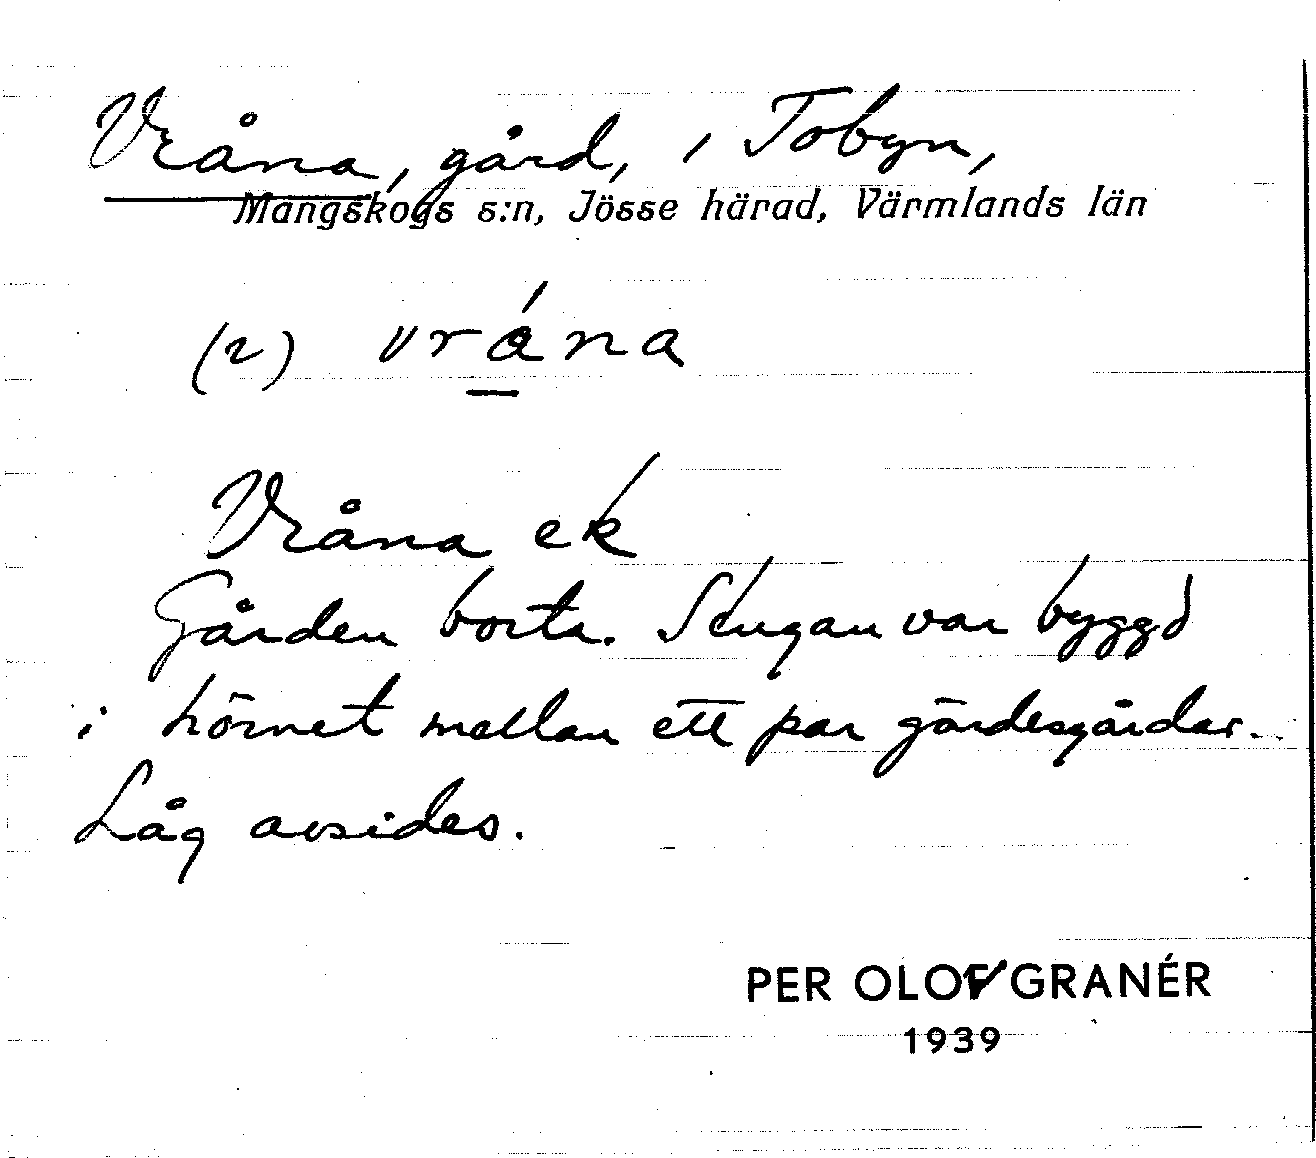 Vråna, gård, i Tobyn,
Mangskogs s:n, Jösse härad, Värmlands län
(2) vrána
Vråna ek
Gården borta. Stugan var byggd
i hörnet mellan ett par gärdesgårdar.
Låg avsides.
PER OLOV GRANÉR
1939